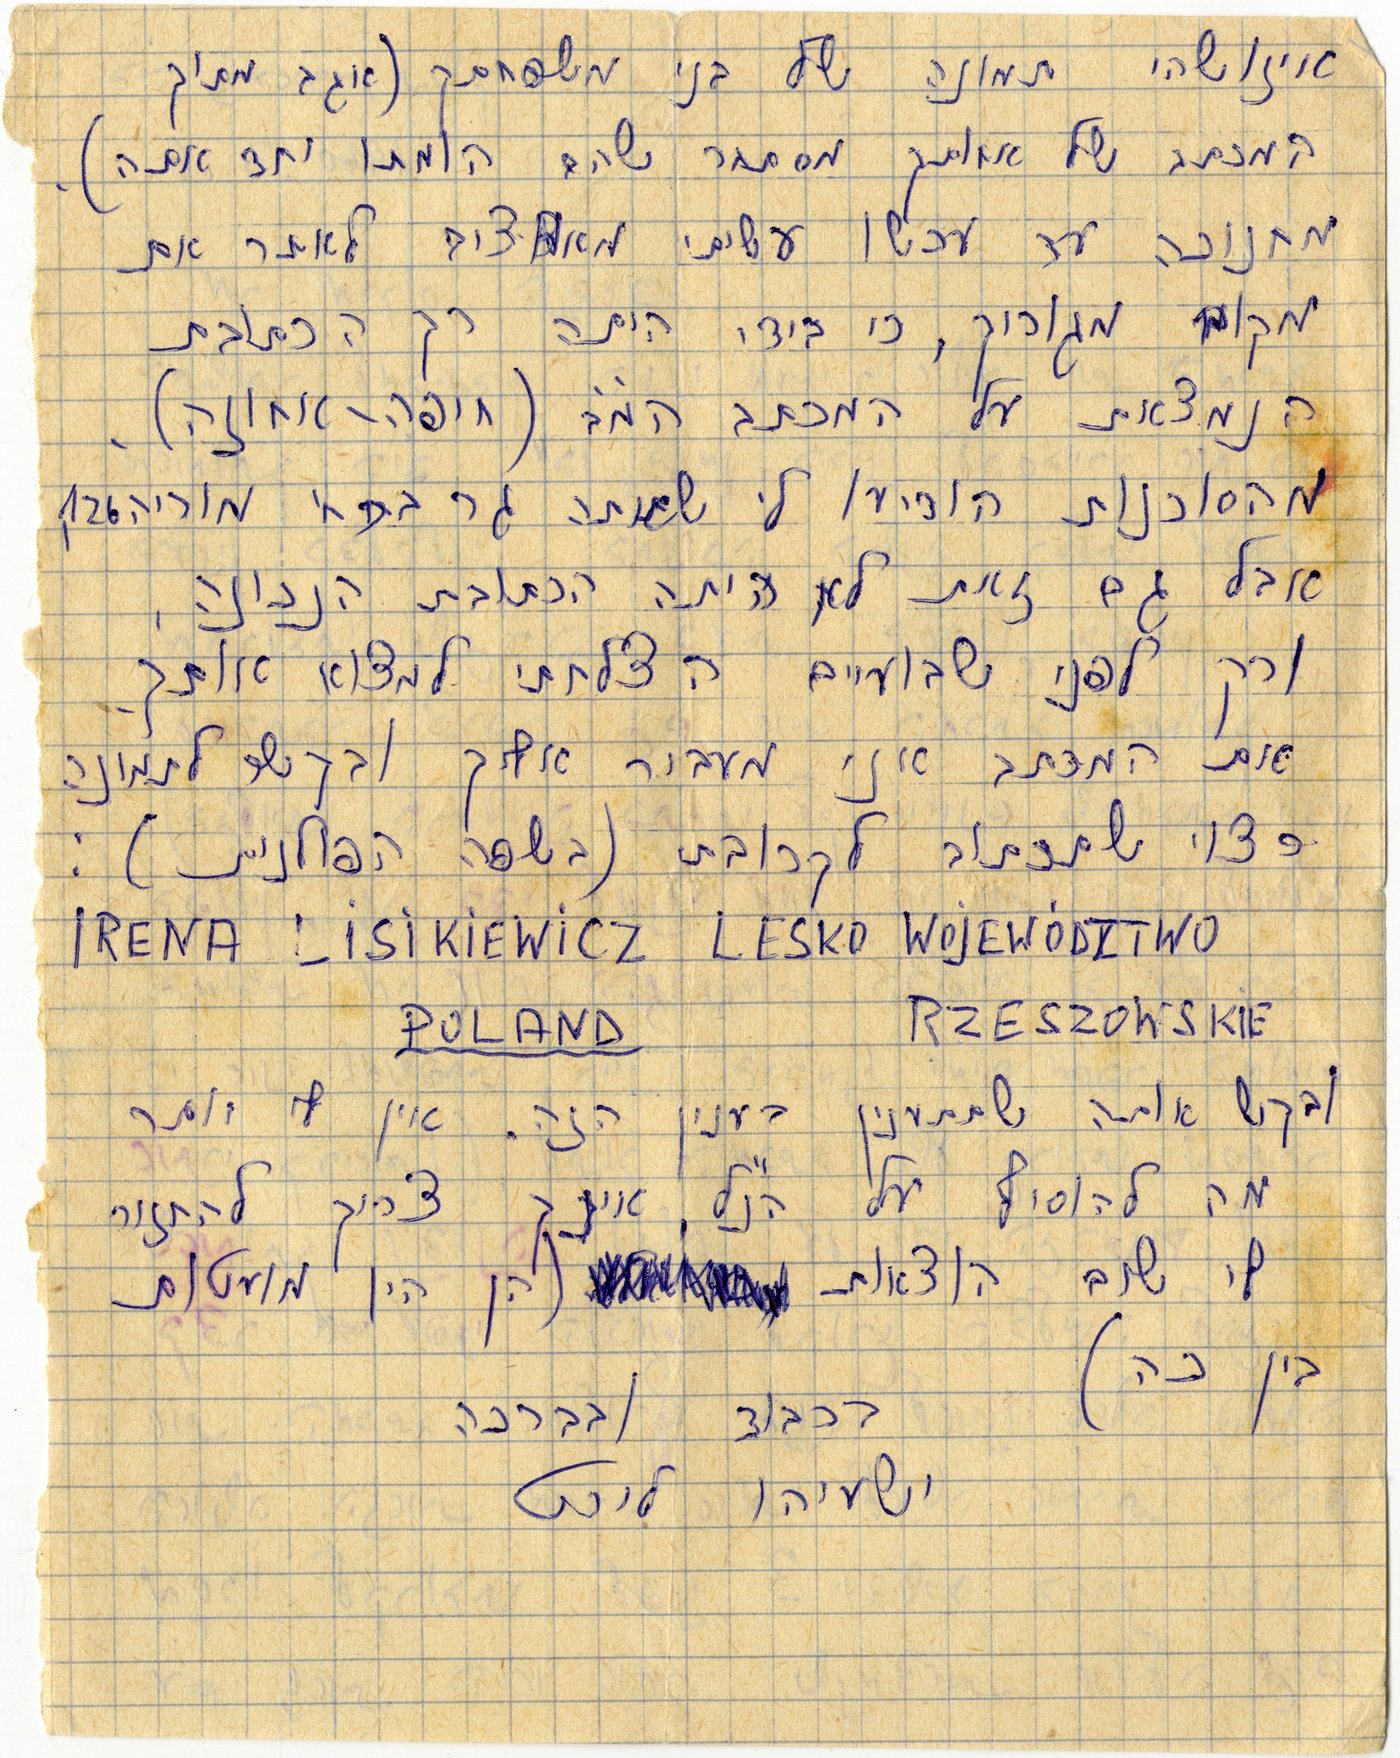 איזושהי תמונה של בני משפחתך (אגב מתוך
המכתב של אחותך מסתבר שהם הומתו יחד אתה).
מחנוכה עד עכשו עשיתי מאמצים לאתר את
מקום מגוריך, כי בידי היתה רק הכתובת
הנמצאת על המכתב המ"ב (חיפה-אחוזה).
מהסוכנות הודיעו לי שאתה גר מוריה 126
אבל גם זאת לא היתה הכתובת הנכונה,
ורק לפני שבועיים הצלחתי למצוא אותך.
את המכתב אני מעביר אליך ובקשר לתמונה
רצוי שתכתוב לקרובתי (בשפה הפולנית):
IRENA LISIKIEWICZ LESKO WOJEWÓDZTWO
POLAND RZESZOWSKIE
ובקש אותה שתתענין בענין הזה. אין לי יותר
מה להוסיף על הנ"ל. אינך צריך להחזיר
לי שום הוצאות (הן היו מועטות
בין כה)
בכבוד ובברכה
ישעיהו ליכט